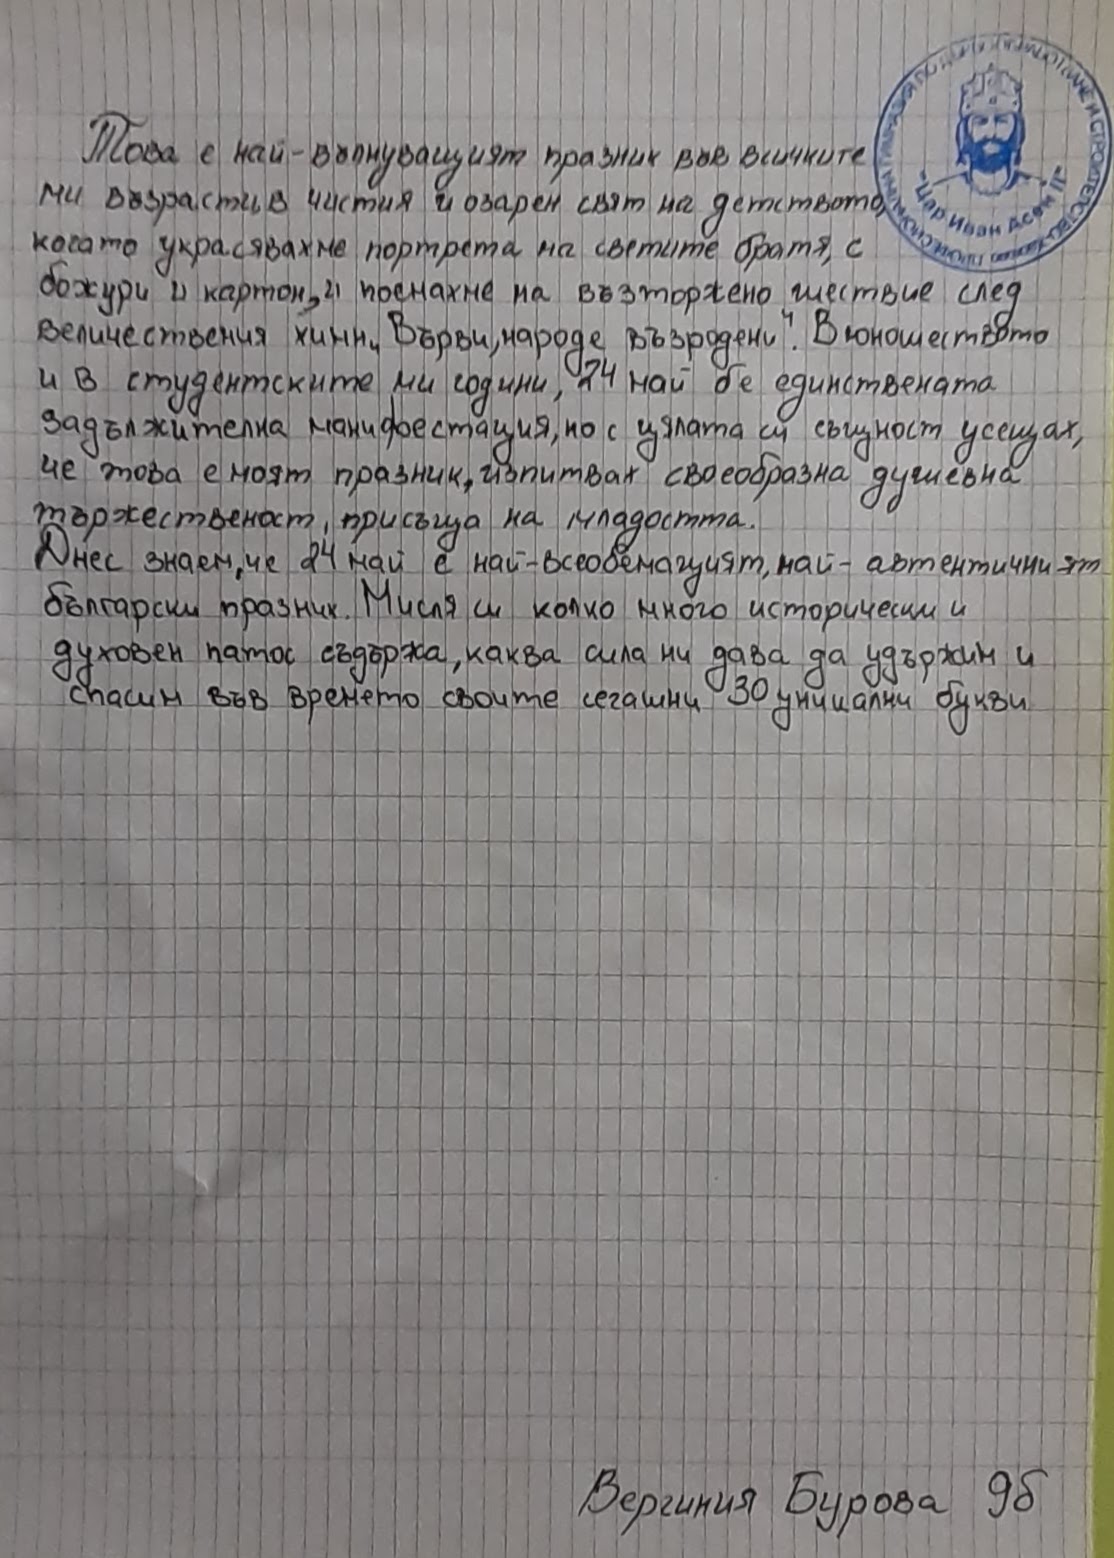 Това е най-вълнуващият празник във всичките
ми възрасти, в чистия и озарен свят на детството,
когато украсявахме портрета на светите братя, с
божури и картон, и поемахме на възторжено шествие след
величествения химн „Върви, народе възродени“. В юношеството
и в студентските ми години, 24 май бе единствената
задължителна манифестация, но с цялата си същност усещах,
че това е моят празник, изпитвах своеобразна душевна
тържественост, присъща на младостта.
Днес знаем, че 24 май е най-всеобемащият, най-автентичният
български празник. Мисля си колко много исторически и
духовен патос съдържа, каква сила ни дава да удържим и
спасим във времето своите сегашни 30 уникални букви
Вергиния Бурова 9б
"Цар Иван Асен II"